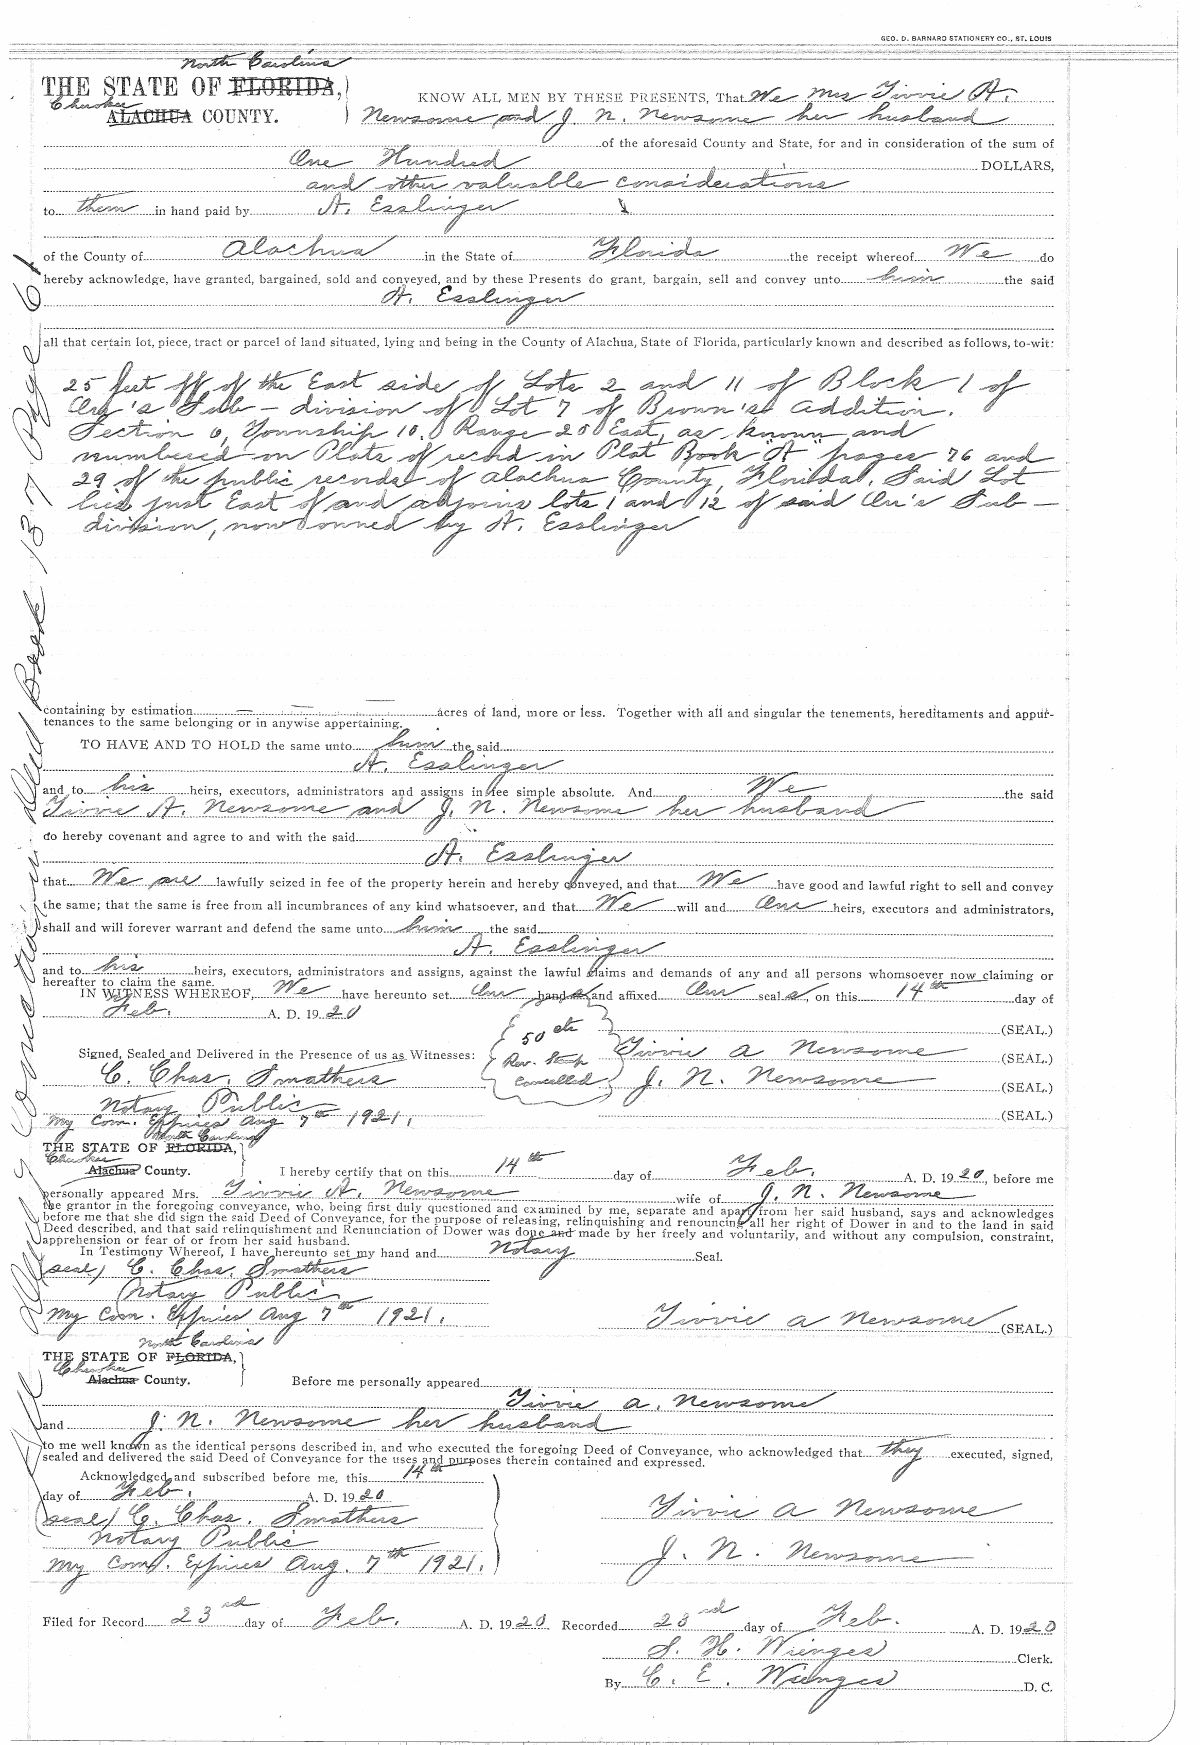 GEO. D. BARNARD STATIONERY CO., ST. LOUIS
North Carolina
THE STATE OF FLORIDA,
Cherokee
ALACHUA COUNTY.
KNOW ALL MEN BY THESE PRESENTS, That We Mrs Tivvie A.
Newsome and J. N. Newsome her husband
of the aforesaid County and State, for and in consideration of the sum of
One Hundred DOLLARS,
and other valuable considerations
to them in hand paid by A. Esslinger
of the County of Alachua in the State of Florida the receipt whereof We do
hereby acknowledge, have granted, bargained, sold and conveyed, and by these Presents do grant, bargain, sell and convey unto him the said
A. Esslinger
all that certain lot, piece, tract or parcel of land situated, lying and being in the County of Alachua, State of Florida, particularly known and described as follows, to-wit:
25 feet off of the East side of Lots 2 and 11 of Block 1 of
Orr's Sub-division of Lot 7 of Brown's addition.
Section 6, Township 10. Range 20 East, as known and
numbered on Plats of record in Plat Book "A" pages 76 and
29 of the public records of Alachua County, Florida. Said Lot
lies just East of and adjoins lots 1 and 12 of said Orr's Sub-
division, now owned by A. Esslinger
containing by estimation acres of land, more or less. Together with all and singular the tenements, hereditaments and appur-
tenances to the same belonging or in anywise appertaining.
TO HAVE AND TO HOLD the same unto him the said
A. Esslinger
and to his heirs, executors, administrators and assigns in fee simple absolute. And We the said
Tivvie A. Newsome and J. N. Newsome her husband
do hereby covenant and agree to and with the said
A. Esslinger
that We are lawfully seized in fee of the property herein and hereby conveyed, and that We have good and lawful right to sell and convey
the same; that the same is free from all incumbrances of any kind whatsoever, and that We will and Our heirs, executors and administrators,
shall and will forever warrant and defend the same unto him the said
A. Esslinger
and to his heirs, executors, administrators and assigns, against the lawful claims and demands of any and all persons whomsoever now claiming or
hereafter to claim the same.
IN WITNESS WHEREOF, We have hereunto set Our hands and affixed Our seals, on this 14th day of
Feb. A. D. 1920
(SEAL.)
50 cts
Rev. Stamp
Cancelled
Tivvie A Newsome (SEAL.)
Signed, Sealed and Delivered in the Presence of us as Witnesses:
C. Chas. Smathers
J. N. Newsome (SEAL.)
Notary Public
(SEAL.)
My Com. Expires Aug 7th 1921.
North Carolina
THE STATE OF FLORIDA,
Cherokee
Alachua County.
I hereby certify that on this 14th day of Feb. A. D. 1920, before me
personally appeared Mrs. Tivvie A. Newsome wife of J. N. Newsome
the grantor in the foregoing conveyance, who, being first duly questioned and examined by me, separate and apart from her said husband, says and acknowledges
before me that she did sign the said Deed of Conveyance, for the purpose of releasing, relinquishing and renouncing all her right of Dower in and to the land in said
Deed described, and that said relinquishment and Renunciation of Dower was done and made by her freely and voluntarily, and without any compulsion, constraint,
apprehension or fear of or from her said husband.
In Testimony Whereof, I have hereunto set my hand and Notary Seal.
(seal) C. Chas. Smathers
Notary Public
My Com. Expires Aug 7th 1921.
Tivvie A Newsome (SEAL.)
North Carolina
THE STATE OF FLORIDA,
Cherokee
Alachua County.
Before me personally appeared
Tivvie A. Newsome
and J. N. Newsome her husband
to me well known as the identical persons described in, and who executed the foregoing Deed of Conveyance, who acknowledged that they executed, signed,
sealed and delivered the said Deed of Conveyance for the uses and purposes therein contained and expressed.
Acknowledged and subscribed before me, this 14th
day of Feb. A. D. 1920
(seal) C. Chas. Smathers
Notary Public
My Com. Expires Aug. 7th 1921.
Tivvie A Newsome
J. N. Newsome
Filed for Record 23rd day of Feb. A. D. 1920 Recorded 23rd day of Feb. A. D. 1920
S. H. Wienges Clerk.
By C. E. Wienges D. C.
Deed Book 137 Page 61